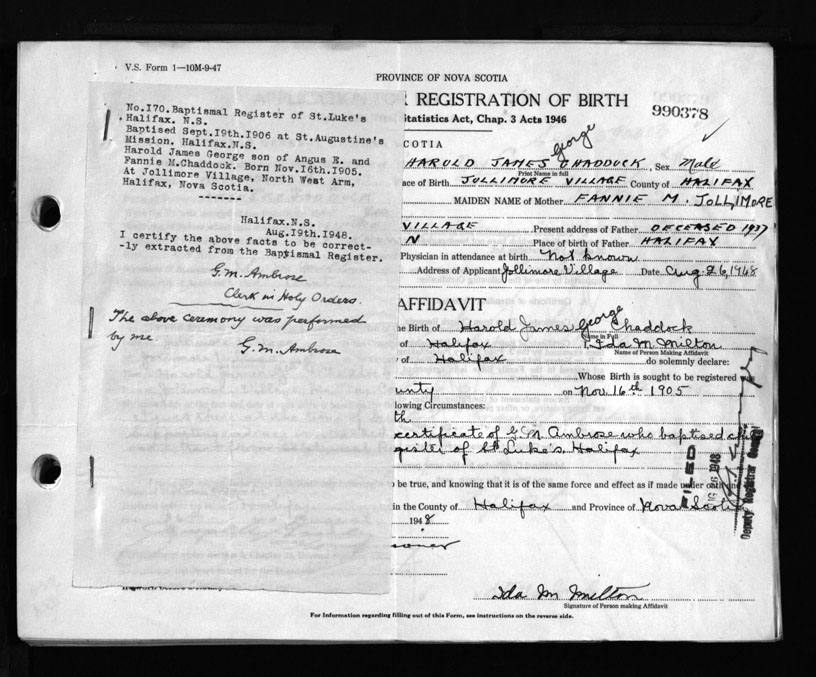 V.S. Form 1—10M-9-47
PROVINCE OF NOVA SCOTIA
R REGISTRATION OF BIRTH
990378
tatistics Act, Chap. 3 Acts 1946
No.I70.Baptismal Register of St.Luke's
Halifax. N.S.
Baptised Sept.19th.1906 at St.Augustine's
Mission. Halifax.N.S.
Harold James George son of Angus E. and
Fannie M.Chaddock. Born Nov.16th.1905.
At Jollimore Village, North West Arm,
Halifax, Nova Scotia.
-------
Halifax.N.S.
Aug.19th.1948.
I certify the above facts to be correct-
-ly extracted from the Baptismal Register.
G.M. Ambrose
Clerk in Holy Orders.
The above ceremony was performed
by me
G.M. Ambrose
SCOTIA
George
HAROLD JAMES CHADDOCK, Sex Male
Print Name in full
ace of Birth JOLLIMORE VILLAGE County of HALIFAX
MAIDEN NAME of Mother FANNIE M. JOLLIMORE
VILLAGE Present address of Father DECEASED 1937
N Place of birth of Father HALIFAX
Physician in attendance at birth Not known
Address of Applicant Jollimore Village Date Aug 26, 1948
AFFIDAVIT
he Birth of Harold James George Chaddock
Name in Full
of Halifax I, Ida M. Milton
Name of Person Making Affidavit
of Halifax do solemnly declare:
Whose Birth is sought to be registered was
unty on Nov. 16th 1905
lowing Circumstances:
th
certificate of G.M. Ambrose who baptised
gister of St Luke's Halifax
be true, and knowing that it is of the same force and effect as if made under oath and
in the County of Halifax and Province of Nova Scotia
1948
FILED
Deputy Registrar General
Ida M Milton
Signature of Person making Affidavit
For Information regarding filling out of this Form, see instructions on the reverse side.